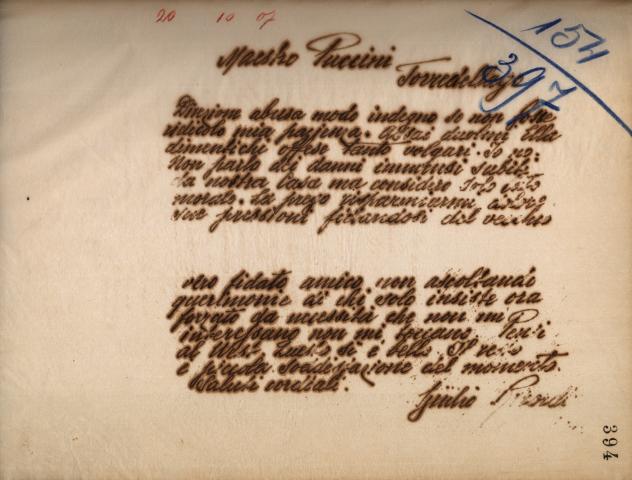 20 10 07
154
397
Maestro Puccini
Torredellago
Direzione abusa modo indegno se non fosse
ridicolo mia pazienza. duolmi Ella
dimentichi offese tanto volgari. Io no.
Non parlo dei danni immensi subiti
da nostra Casa ma considero solo lato
morale. La prego risparmiarmi altre
sue pressioni fidandosi del vecchio
vero fidato amico non ascoltando
querimonie di chi solo insiste ora
forzato da necessità che non mi
interessano non mi toccano. Pensi
al West è bello Il resto
è piccola soddisfazione del momento.
Saluti cordiali.
Giulio Ricordi
394